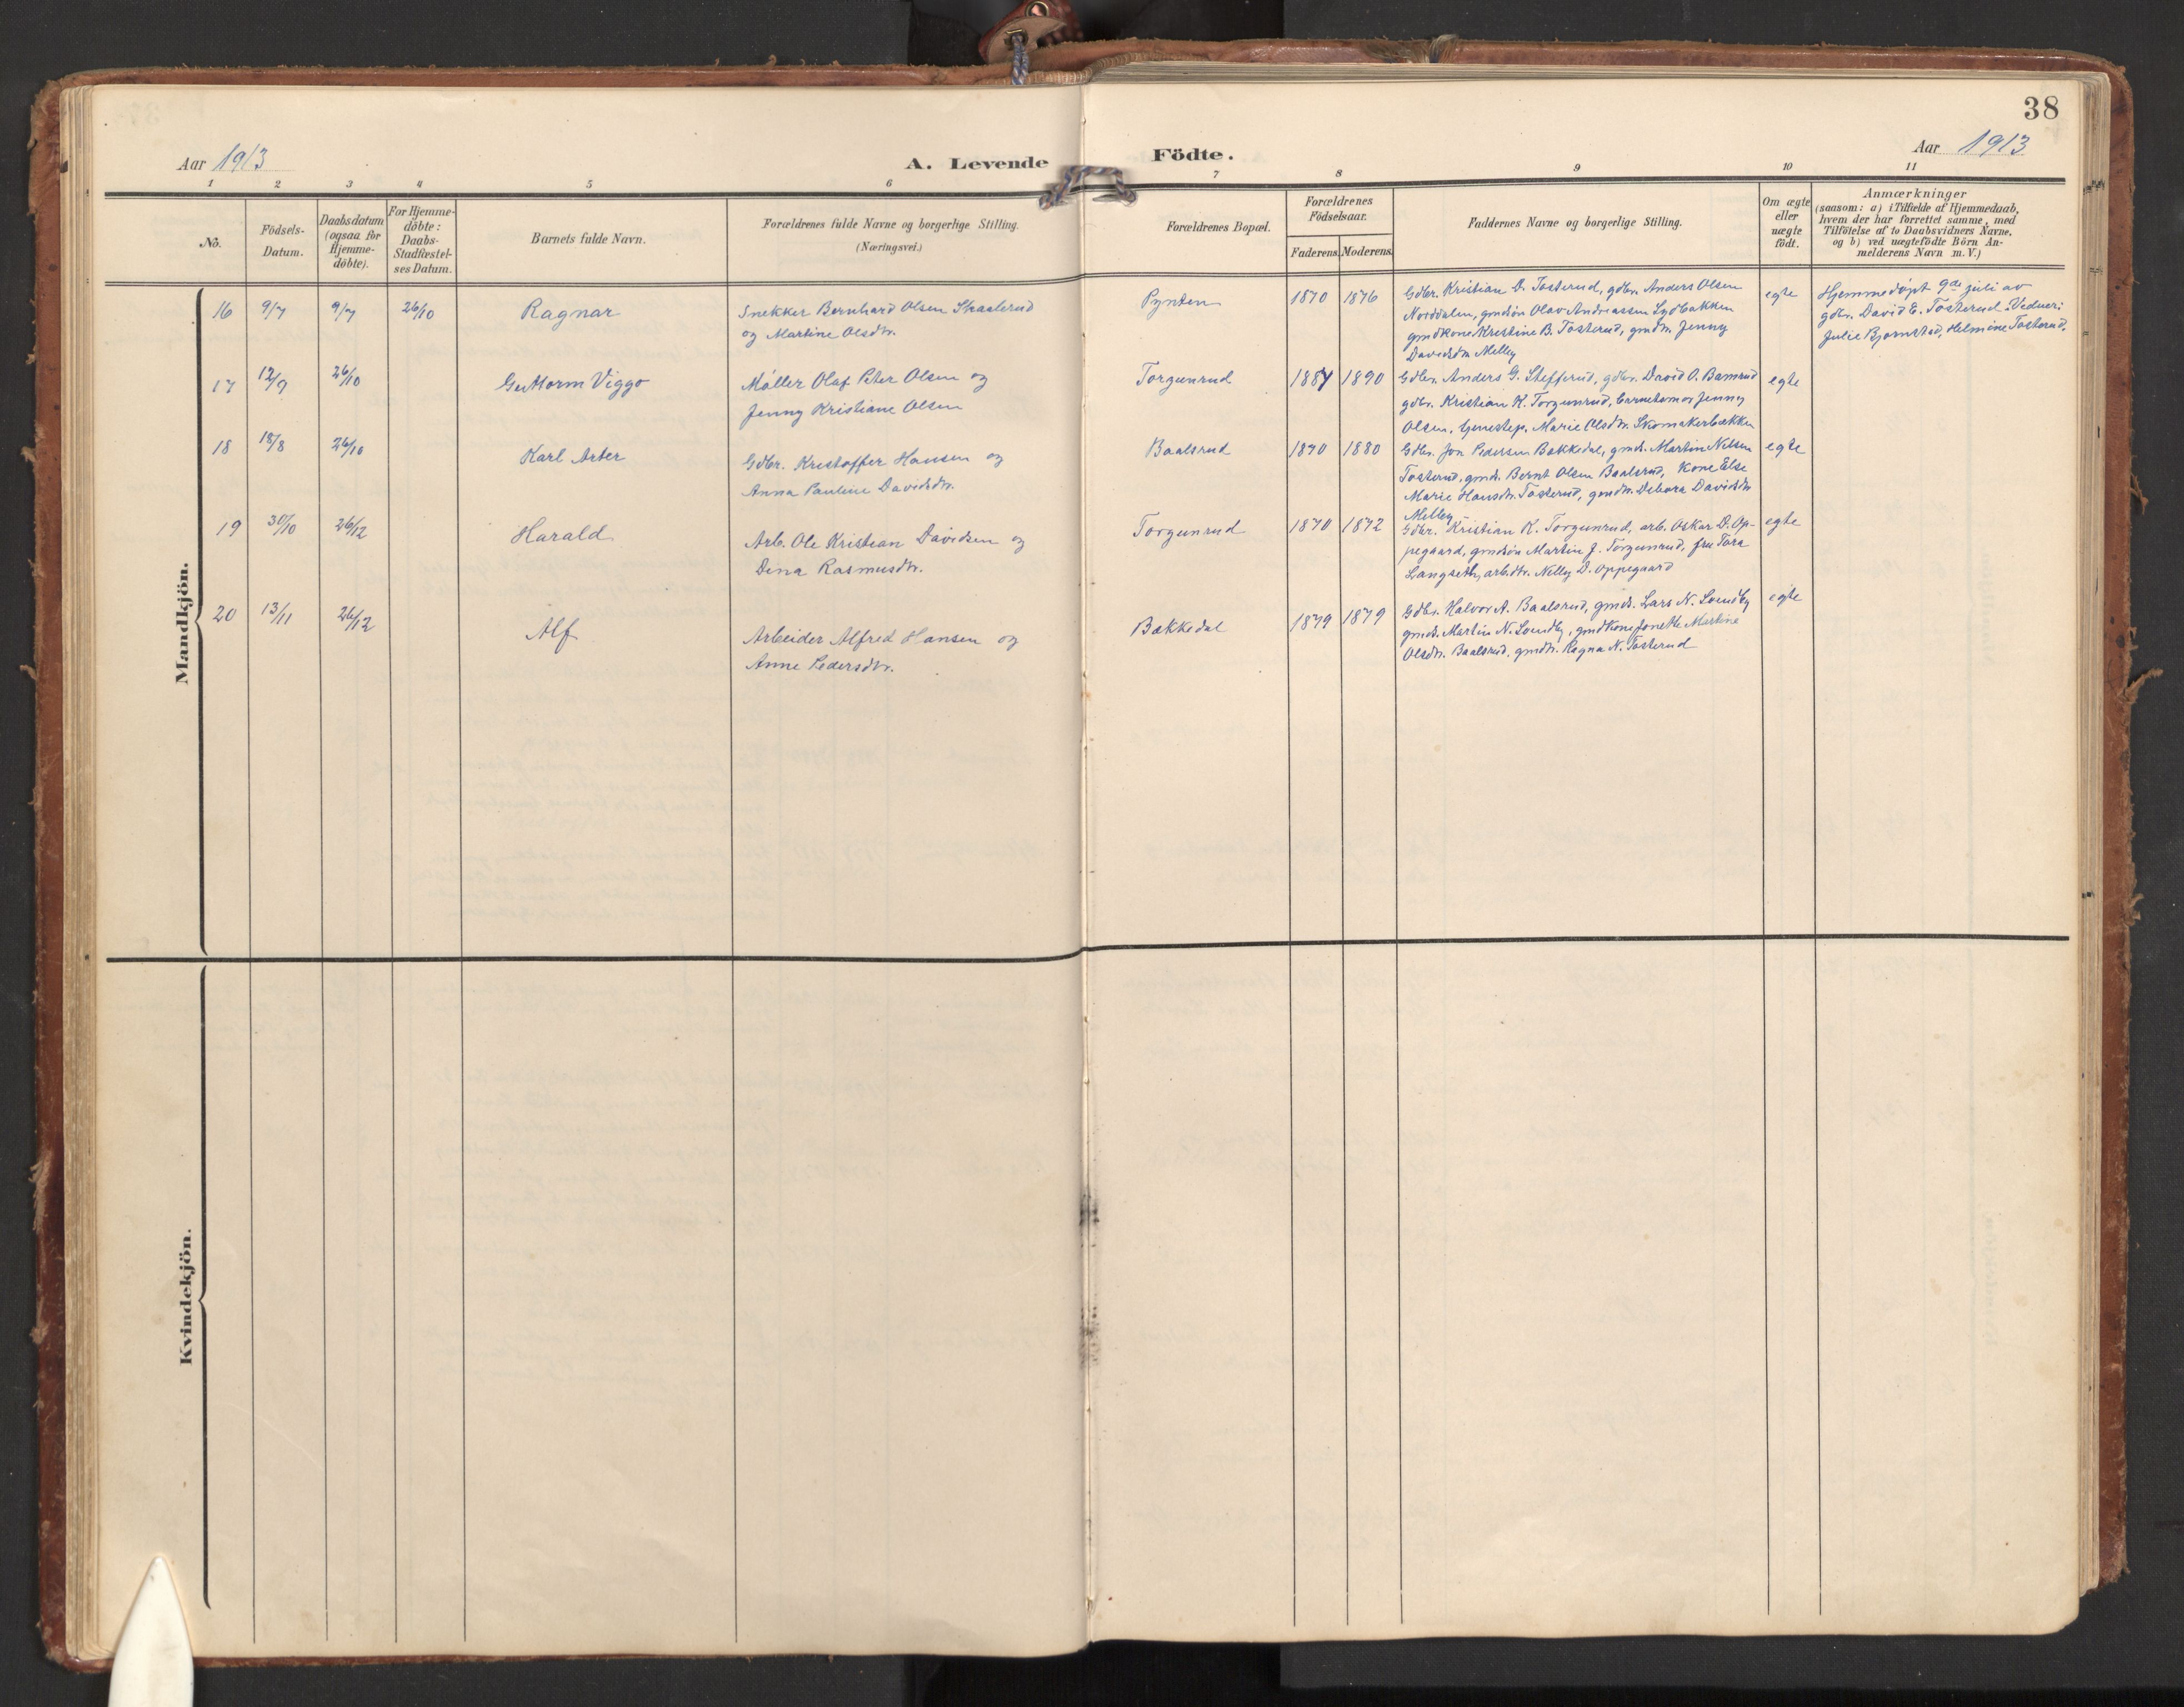 38
Aar 1913
A. Levende Födte.
Aar 1913
1 2 3 4 5 6 7 8 9 10 11
No.
Födsels-
Datum.
Daabsdatum
(ogsaa for
Hjemme-
döbte).
For Hjemme-
döbte:
Daabs-
Stadfæstel-
ses Datum.
Barnets fulde Navn.
Forældrenes fulde Navne og borgerlige Stilling.
(Næringsvei.)
Forældrenes Bopæl.
Forældrenes
Födselsaar.
Faderens.
Moderens.
Faddernes Navne og borgerlige Stilling.
Om ægte
eller
uægte
født.
Anmærkninger
(saasom: a) i Tilfælde af Hjemmedaab,
hvem der har forrettet samme, med
Tilföielse af to Daabsvidners Navne,
og b) ved uægtefödte Börn An-
melderens Navn m. V.)
Mandkjön.
16 9/7 9/7 26/10 Ragnar
Snekker Bernhard Olsen Skaalerud
og Martine Olsdtr.
Pynten 1870 1876
Gdbr. Kristian D. Tosterud, gdbr. Anders Olsen
Norddalen, gmdsøn Olav Andreassen Lydbakken
gmdkone Kristine B. Tosterud, gmdtr. Jenny
Davidsdtr. Melby
egte
Hjemmedøpt 9de juli av
gdbr. David E. Tosterud. Vidner:
Julie Bjørnstad, Helmine Tosterud.
17 12/9 26/10 Guttorm Viggo
Møller Olaf Peter Olsen og
Jenny Kristiane Olsen
Torgunrud 1887 1890
Gdbr. Anders G. Stefferud, gdbr. David O. Bamrud
gdbr. Kristian K. Torgunrud, barnetsmor Jenny
Olsen, tjenestep. Marie Olsdtr. Skomakerbækken
egte
18 18/8 26/10 Karl Arter
Gdbr. Kristoffer Hansen og
Anna Pauline Davidsdtr.
Baalsrud 1870 1880
Gdbr. Jon Pedersen Bækkedal, gmds. Martin Nilsen
Tosterud, gmds. Bernt Olsen Baalsrud, Kone Else
Marie Hansdtr. Tosterud, gmdtr. Debora Davidsdtr
Melby
egte
19 30/10 26/12 Harald
Arb. Ole Kristian Davidsen og
Dina Rasmusdtr.
Torgunrud 1870 1872
Gdbr. Kristian K. Torgunrud, arb. Oskar D. Op-
pegaard, gmdsøn Martin J. Torgunrud, fru Tora
Langseth, arb.dtr. Nelly D. Oppegaard
egte
20 13/11 26/12 Alf
Arbeider Alfred Hansen og
Anne Pedersdtr.
Bækkedal 1879 1879
Gdbr. Halvor A. Baalsrud, gmds. Lars N. Lundby
gmds. Martin N. Lundby, gmdkone Jonette Martine
Olsdtr. Baalsrud, gmdtr. Ragna N. Tosterud
egte
Kvindekjön.